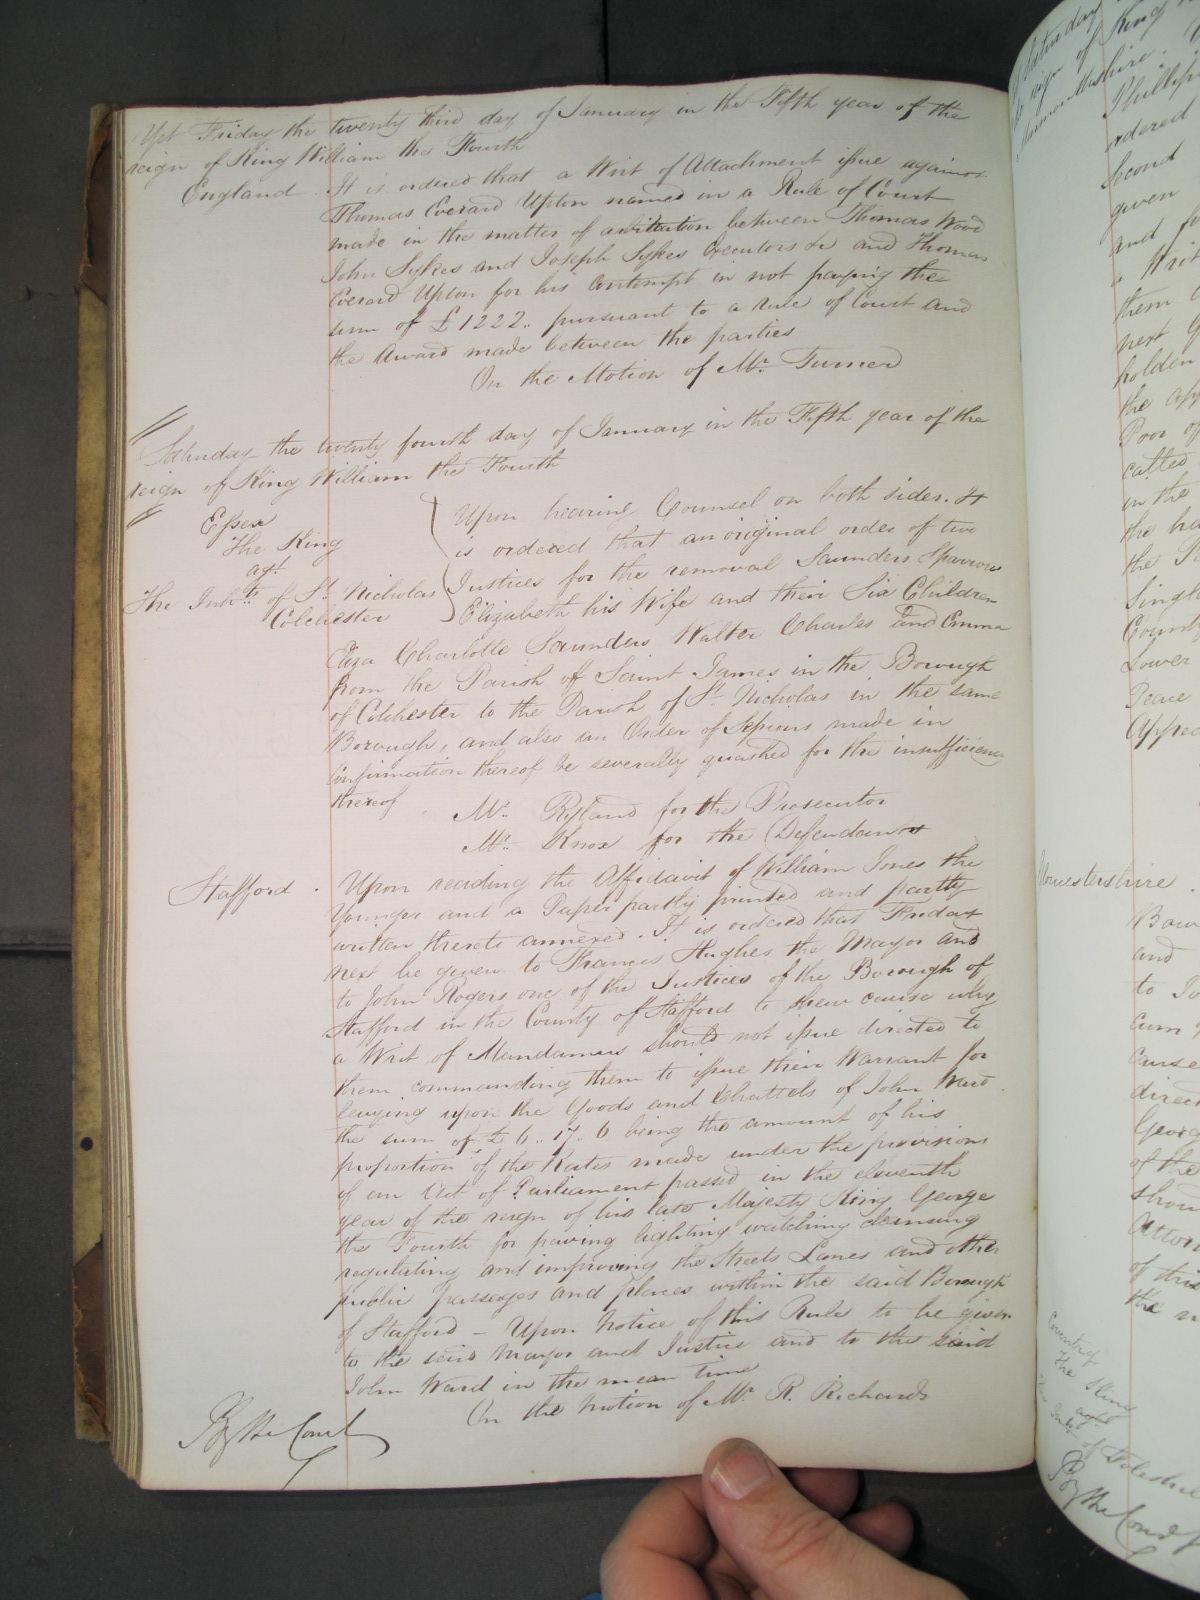 Yet Friday the twenty third day of January in the Fifth year of the
reign of King William the Fourth
England It is ordered that a Writ of Attachment issue against
Thomas Everard Upton named in a Rule of Court
made in the matter of arbitration between Thomas Wood
John Sykes and Joseph Sykes Executors &c and Thomas
Everard Upton for his Contempt in not paying the
sum of £1222.. pursuant to a rule of Court and
the Award made between the parties
On the Motion of Mr. Turner
Saturday the twenty fourth day of January in the Fifth year of the
reign of King William the Fourth
Essex
The King
agt
The Inhts. of St. Nicholas
Colchester
Upon hearing Counsel on both sides. It
is ordered that an original order of two
Justices for the removal Saunders Sparrow
Elizabeth his Wife and their Six Children
Eliza Charlotte Saunders Walter Charles and Emma
from the Parish of Saint James in the Borough
of Colchester to the Parish of St. Nicholas in the same
Borough, and also an Order of Sessions made in
Confirmation thereof be severally quashed for the insufficiency
thereof
Mr. Ryland for the Prosecutor
Mr. Knox for the Defendants
Stafford . Upon reading the Affidavit of William Jones the
Younger and a Paper partly printed and partly
written thereto annexed. It is ordered that Friday
next be given to Francis Hughes the Mayor and
to John Rogers one of the Justices of the Borough of
Stafford in the County of Stafford to shew cause why
a Writ of Mandamus should not issue directed to
them commanding them to issue their Warrant for
levying upon the Goods and Chattels of John Ward
the sum of £6..17..6 being the amount of his
proportion of the Rates made under the provisions
of an Act of Parliament passed in the eleventh
year of the reign of his late Majesty King George
the Fourth for paving lighting watching cleansing
regulating and improving the Streets Lanes and other
public passages and places within the said Borough
of Stafford – Upon Notice of this Rule to be given
to the said Mayor and Justice and to the said
John Ward in the mean time
On the Motion of Mr. R. Richards
By the Court
Saturday
reign of King
Monmouthshire.
Phillips
ordered
Second
given
and
a Writ
them
next
holden
the app
Poor of
called
in the
the
the
Singl
County
Lower
Peace
Appea
Worcestershire .
and
to Jo
Cause
direc
George
of the
shou
Attor
of this
the
Coventry
The King
agt
of Coleshill
By the Court